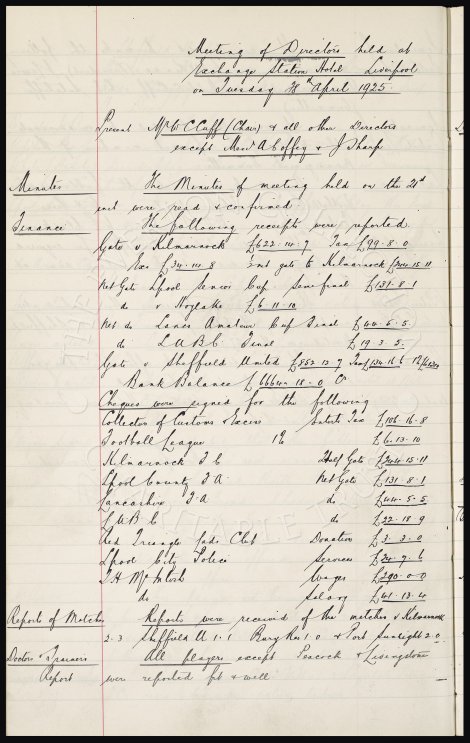 Meeting of Directors held at
Exchange Station Hotel Liverpool
on Tuesday 28th April 1925.
Present Mr W C Cuff (Chair) & all other Directors
except Messrs A Coffey & J Sharp
Minutes The Minutes of meeting held on the 21st
inst were read & confirmed.
Finance The following receipts were reported.
Gate v Kilmarnock £622.14.7 Tax £99.8.0
Exs £34.14.8 ½nd gate to Kilmarnock £244.15.11
Net Gate Lpool Senior Cup Semifinal £131.8.1
do v Hoylake £6.11.10
Net do Lancs Amateur Cup Final £44.5.5.
do L.U.B.C Final £19.3.5.
Gate v Sheffield United £852.13.7 Tax £134.16.6
Bank Balance £6664.18.0 Cr
Cheques were signed for the following
Collector of Customs & Excise Entert Tax £106.16.8
Football League 1% £6.13.10
Kilmarnock F C Half Gate £244.15.11
Lpool County F.A. Net Gate £131.8.1
Lancashire F.A do £44.5.5
L.U.B.C do £22.18.9
Red Triangle Lads Club Donation £3.3.0
Lpool City Police Services £24.7.6
T.H. McIntosh Wages £290.0.0
do Salary £41.13.4
Reports of Matches Reports were received of the matches v Kilmarnock
2.3 Sheffield U 1.1 Bury Res 1.0 & Port Sunlight 2.0
Doctors & Trainers All players except Peacock & Livingstone
Report were reported fit & well